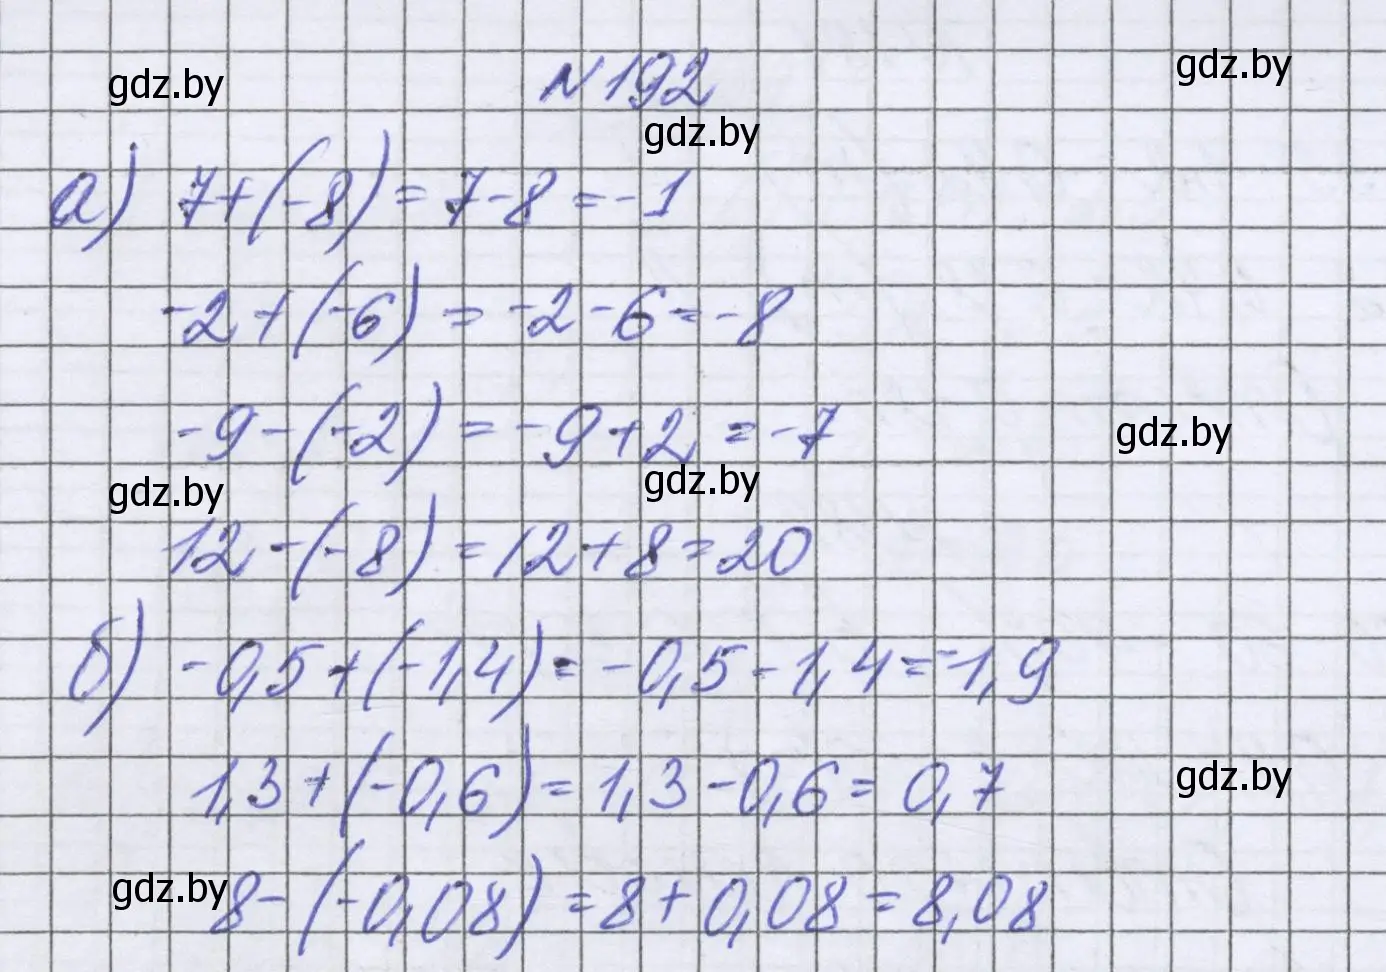 gdz.by
№192
gdz.by
gdz.by
а) 7+(-8)=7-8=-1
-2+(-6)=-2-6=-8
-9-(-2)=-9+2=-7
gdz.by
gdz.by
gdz.by
12-(-8)=12+8=20
б) -0,5+(-1,4)=-0,5-1,4=-1,9
1,3+(-0,6)=1,3-0,6=0,7
gdz.by
gdz.by
8-(-0,08)=8+0,08=8,08